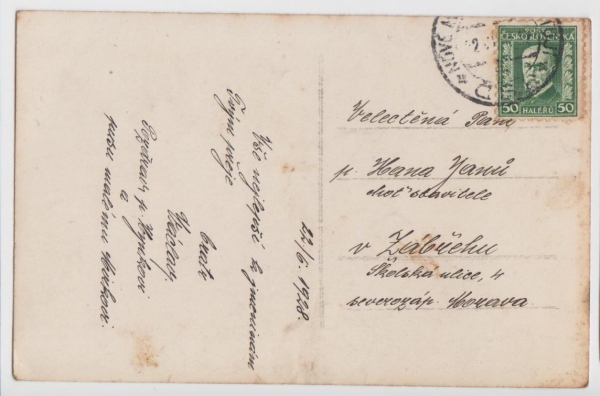 22/6. 1928
Vše nejlepší k jmeninám
Tvým přeje
bratr
Václav.
Pozdrav p. Hynkovi
a
pusu malému
NOVÉ
ČESKOSLOVENSKÁ
50 HALÉŘŮ 50
Velectěná Paní
p. Hana Janů
choť stavitele
v Zábřehu
Školská ulice, 4
severozáp. Morava.